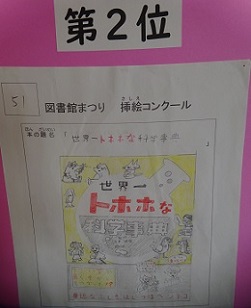 第2位
51
図書館まつり 挿絵コンクール
さしえ
本の題名「世界一トホホな科学事典」
ほん だいめい
世界一
トホホな
科学事典